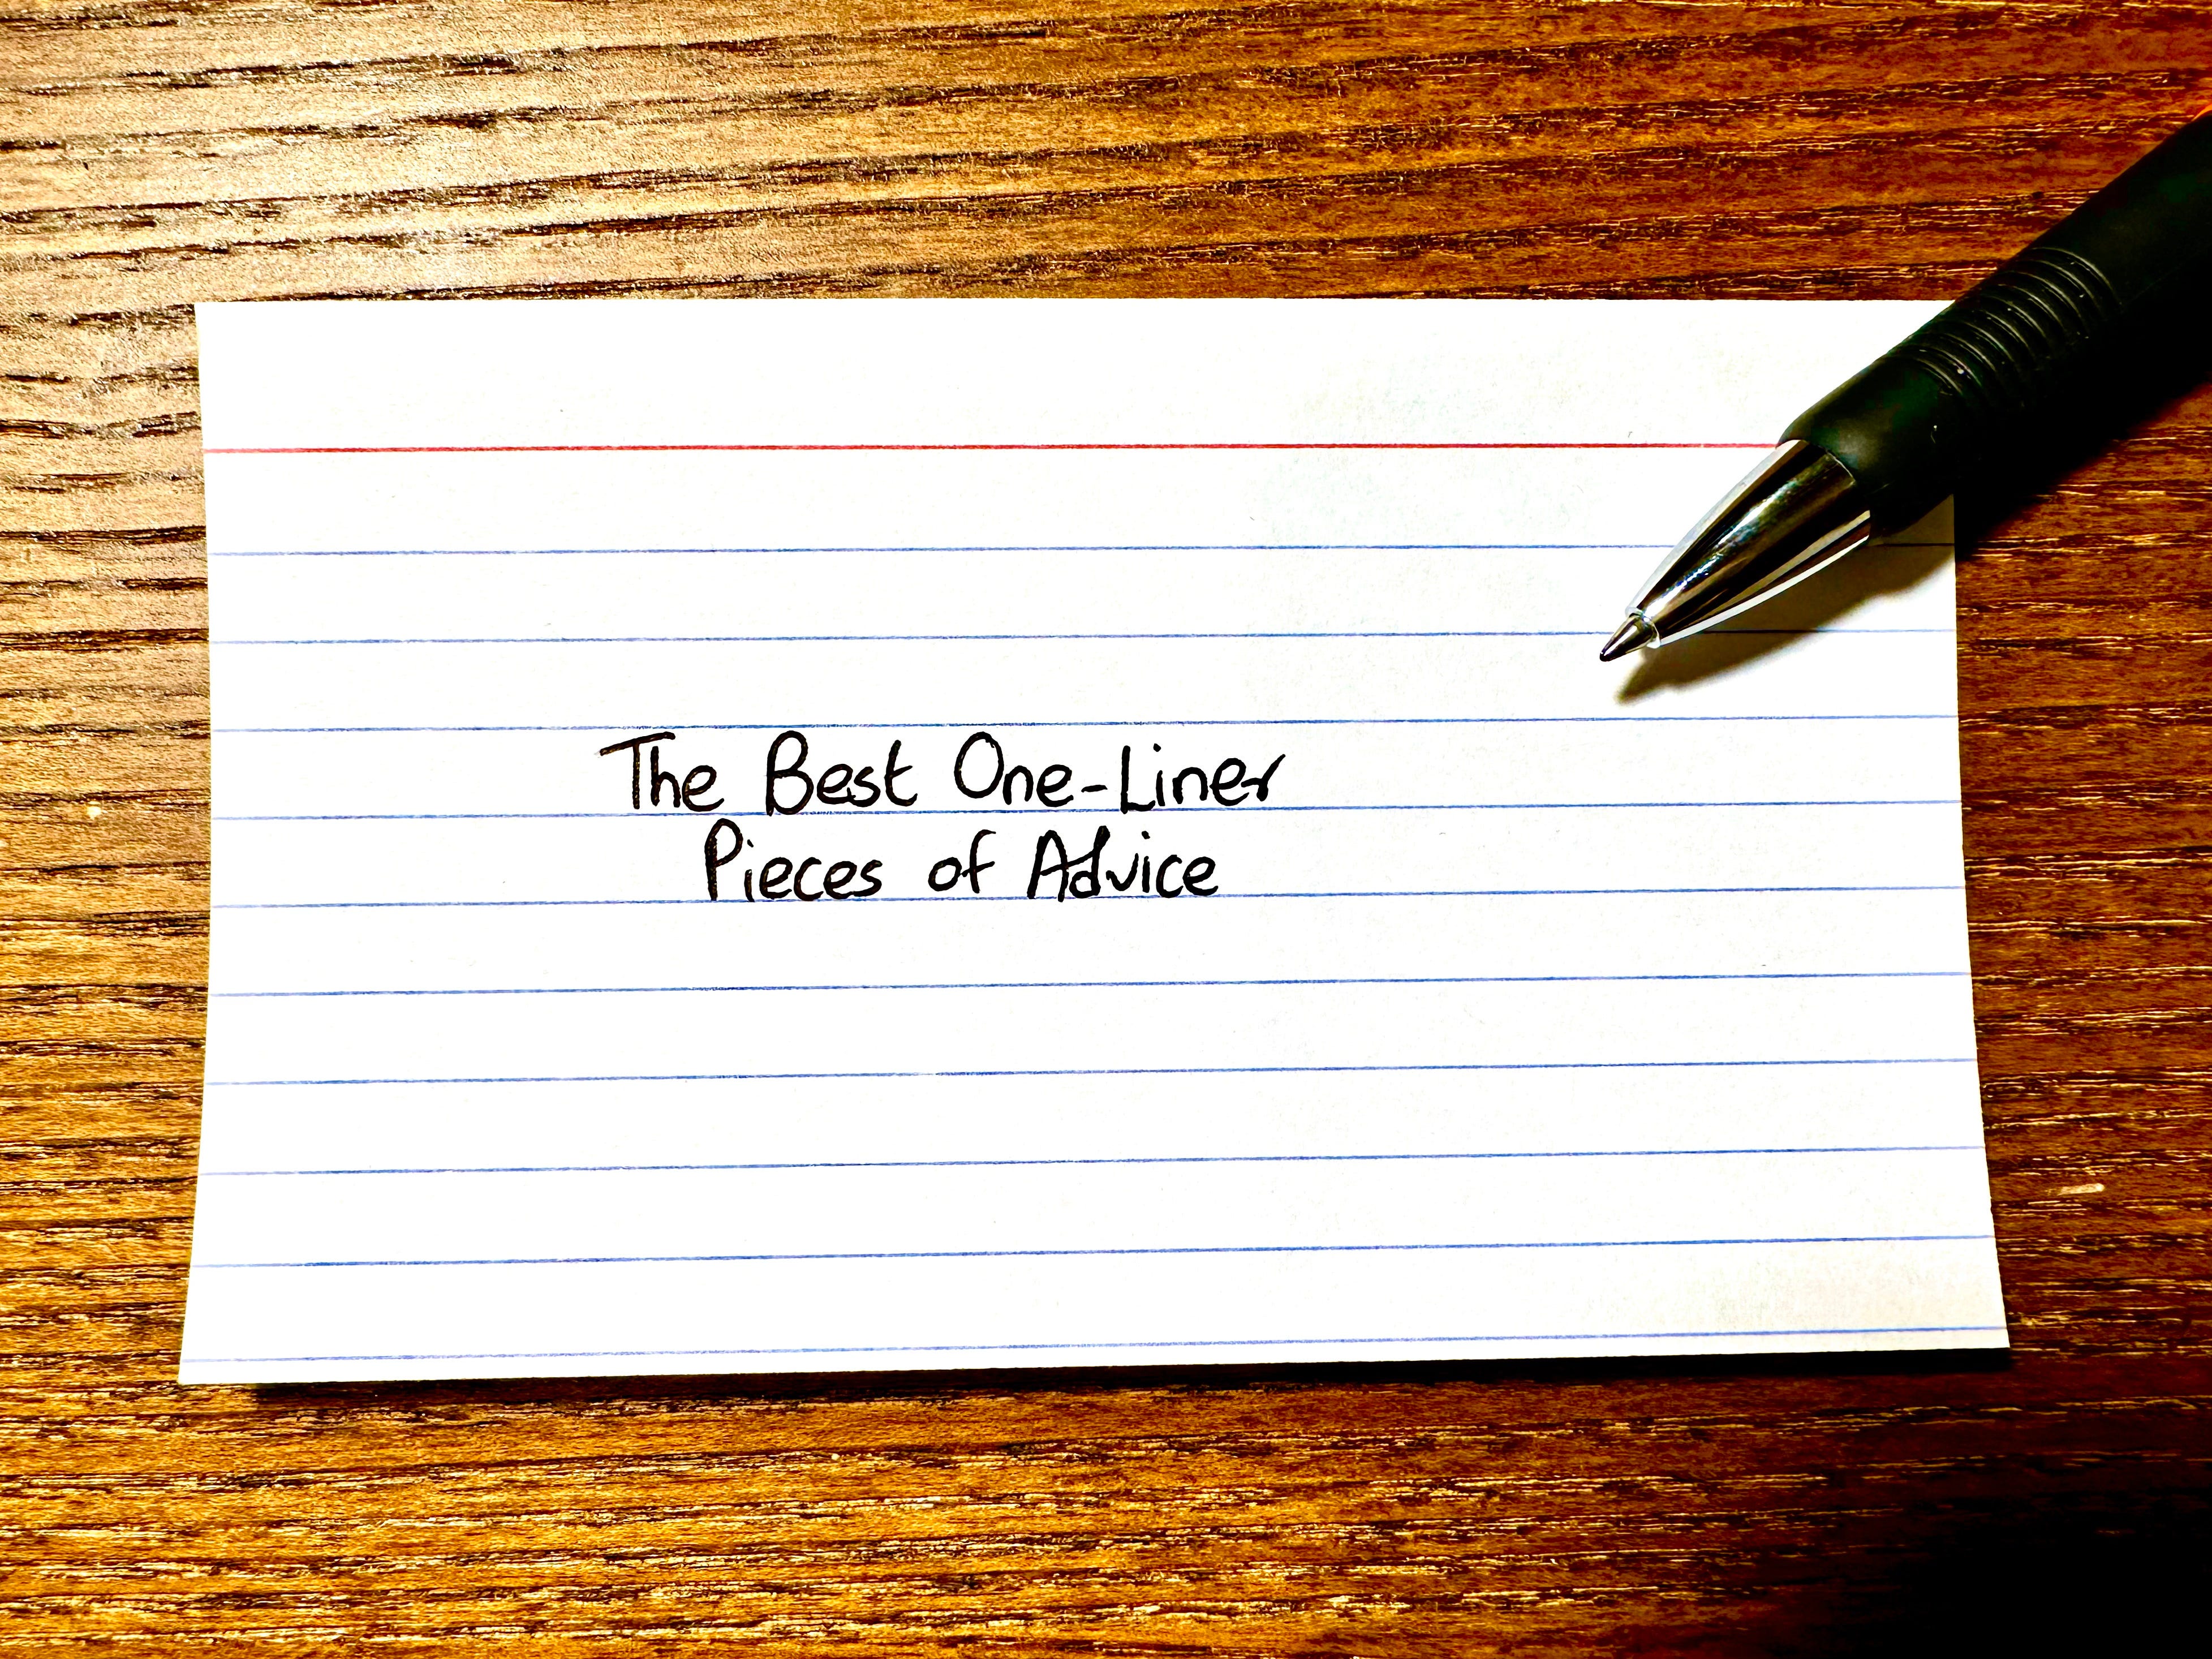 The Best One-Liner
Pieces of Advice